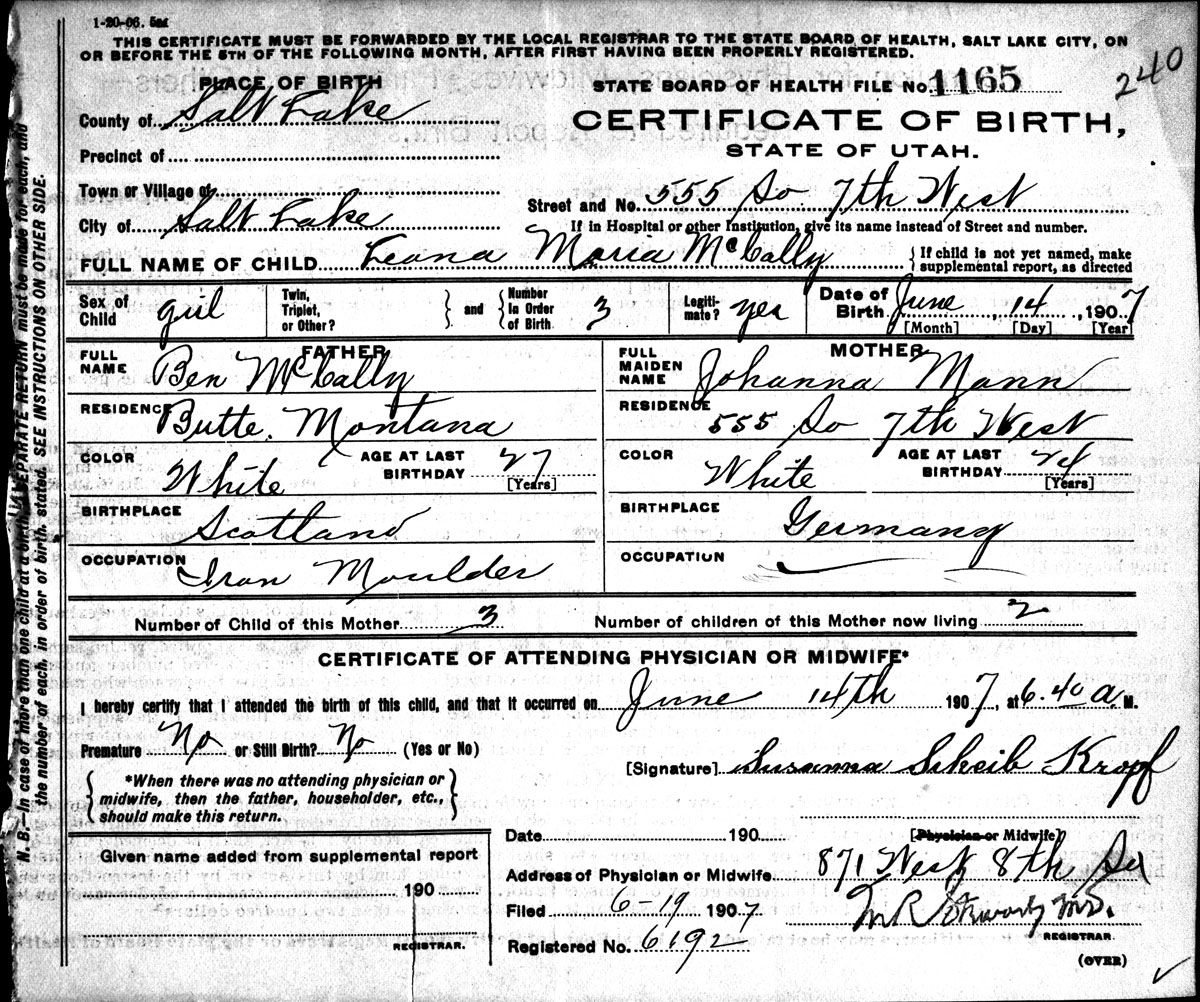 1-20-06. 5m
THIS CERTIFICATE MUST BE FORWARDED BY THE LOCAL REGISTRAR TO THE STATE BOARD OF HEALTH, SALT LAKE CITY, ON
OR BEFORE THE 5TH OF THE FOLLOWING MONTH, AFTER FIRST HAVING BEEN PROPERLY REGISTERED.
240
PLACE OF BIRTH
STATE BOARD OF HEALTH FILE No. 1165
County of Salt Lake
CERTIFICATE OF BIRTH,
Precinct of
STATE OF UTAH.
Town or Village of
Street and No. 555 So 7th West
City of Salt Lake
If in Hospital or other Institution, give its name instead of Street and number.
FULL NAME OF CHILD Leona Maria McCally { If child is not yet named, make supplemental report, as directed
Sex of Child girl Twin, Triplet, or Other? } and { Number In Order of Birth 3 Legitimate? yes Date of Birth June 14, 1907
[Month] [Day] [Year]
FATHER
MOTHER
FULL NAME Ben McCally
FULL MAIDEN NAME Johanna Mann
RESIDENCE Butte, Montana
RESIDENCE 555 So 7th West
COLOR White AGE AT LAST BIRTHDAY 27 [Years]
COLOR White AGE AT LAST BIRTHDAY 24 [Years]
BIRTHPLACE Scotland
BIRTHPLACE Germany
OCCUPATION Iron Moulder
OCCUPATION
Number of Child of this Mother 3 Number of children of this Mother now living 2
CERTIFICATE OF ATTENDING PHYSICIAN OR MIDWIFE*
I hereby certify that I attended the birth of this child, and that it occurred on June 14th 1907, at 6.40 a M.
Premature No or Still Birth? No (Yes or No)
[Signature] Susanna Scheib Kropf
{ *When there was no attending physician or
midwife, then the father, householder, etc.,
should make this return. }
Date 190
[Physician or Midwife]
Given name added from supplemental report
Address of Physician or Midwife 871 West 8th So
190
Filed 6-19 1907
M.D.
REGISTRAR.
REGISTRAR.
Registered No. 6192
(OVER)
N. B.—In case of more than one child at a birth, a SEPARATE RETURN must be made for each, and
the number of each, in order of birth, stated. SEE INSTRUCTIONS ON OTHER SIDE.